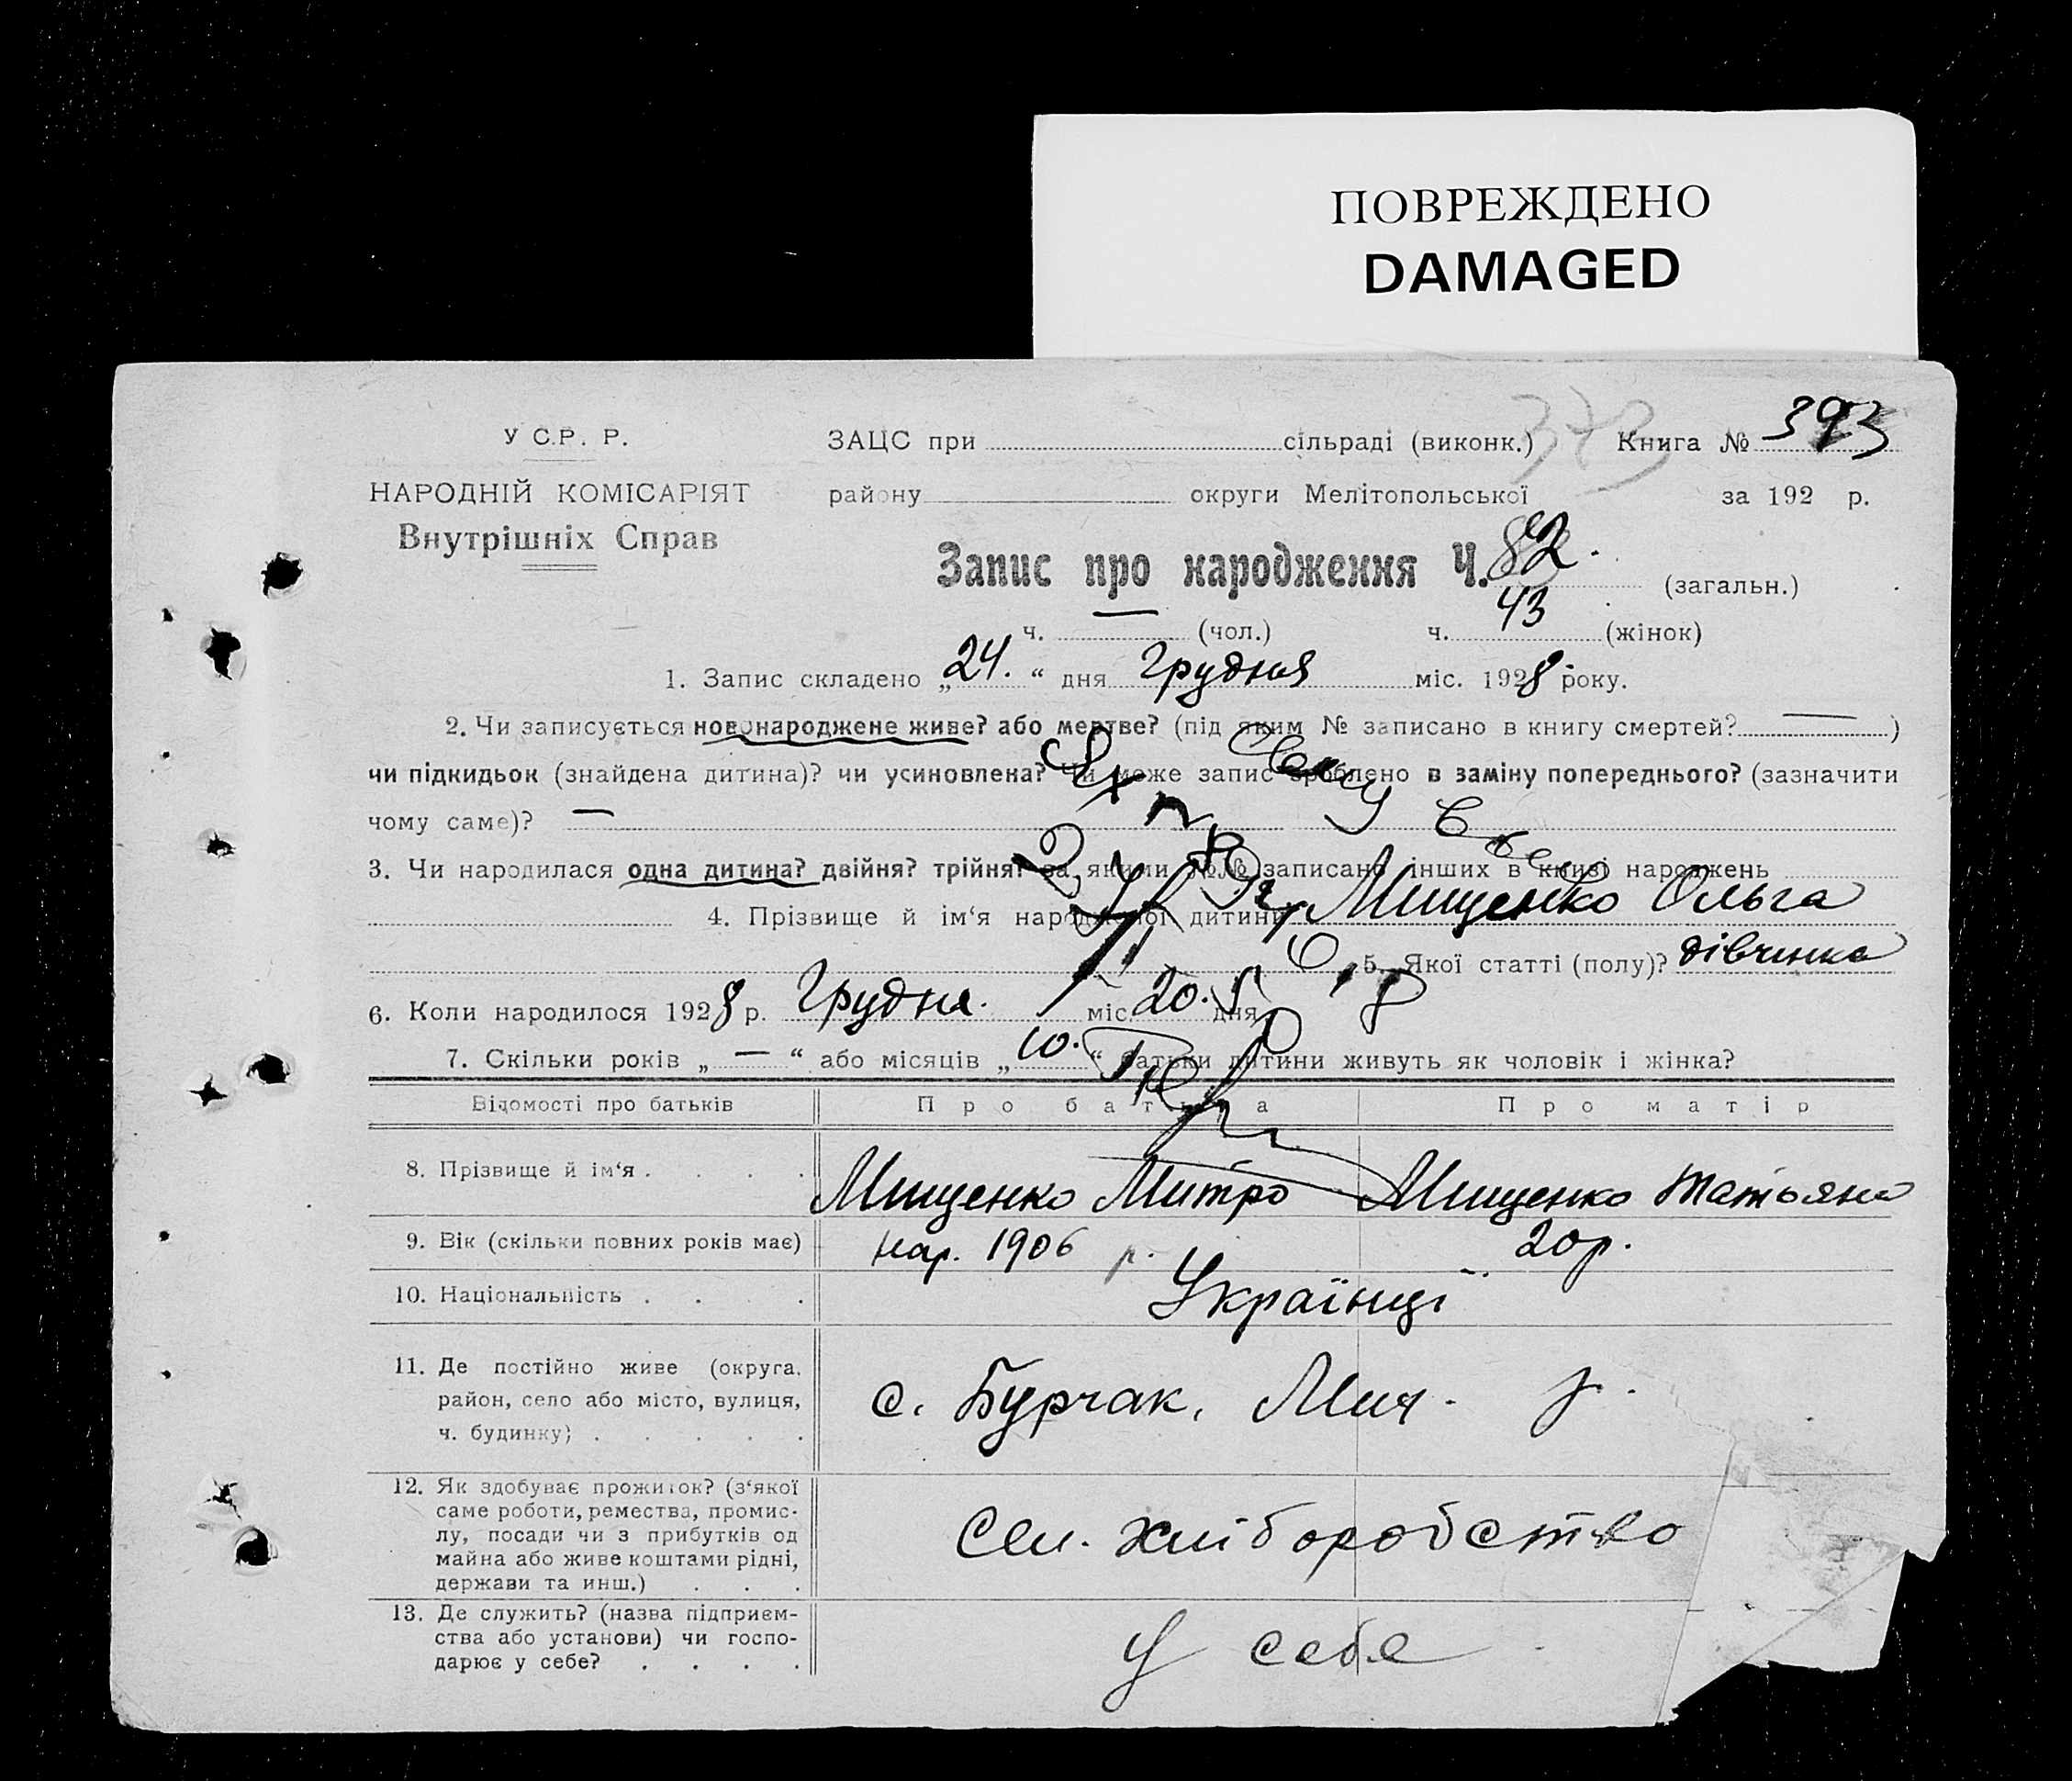 ПОВРЕЖДЕНО
DAMAGED
У С.Р. Р.
НАРОДНІЙ КОМІСАРІЯТ
Внутрішніх Справ
ЗАЦС при сільраді (виконк.) 373 Книга № 393
району округи Мелітопольської за 192 р.
Запис про народження Ч. 82. (загальн.)
ч. — (чол.) ч. 43 (жінок)
1. Запис складено „24.“ дня Грудня міс. 1928 року.
2. Чи записується новонароджене живе? або мертве? (під яким № записано в книгу смертей? — )
чи підкидьок (знайдена дитина)? чи усиновлена? Чи може запис зроблено в заміну попереднього? (зазначити
чому саме)? —
3. Чи народилася одна дитина? двійня? трійня? за якими №№ записано інших в книзі народжень
4. Прізвище й ім‘я народженої дитини Мищенко Ольга
5. Якої статті (полу)? дівчинка
6. Коли народилося 1928 р. Грудня. міс. 20. дня
7. Скільки років „ — “ або місяців „10.“ батьки дитини живуть як чоловік і жінка?
Відомості про батьків Про батька Про матір
8. Прізвище й ім‘я . . . . Мищенко Митро Мищенко Татьяна
9. Вік (скільки повних років має) нар. 1906 р. 20 р.
10. Національність . . . . Українці
11. Де постійно живе (округа,
район, село або місто, вулиця,
ч. будинку) . . . . .
с. Бурчак, Мих. р.
12. Як здобуває прожиток? (з‘якої
саме роботи, ремества, промис-
лу, посади чи з прибутків од
майна або живе коштами рідні,
держави та инш.) . . .
Сел. хліборобство
13. Де служить? (назва підприєм-
ства або установи) чи госпо-
дарює у себе? . . . .
у себе